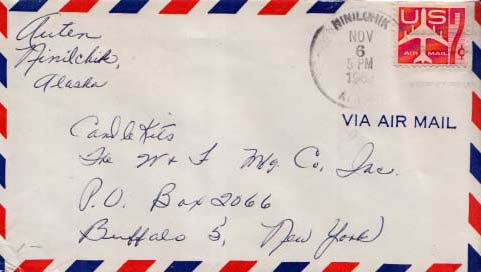 Auten
Ninilchik,
Alaska
NINILCHIK
NOV
6
5 PM
US 7
AIR MAIL ¢
VIA AIR MAIL
Candle Kits
The W + F Mfg Co., Inc.
P.O. Box 2066
Buffalo 5, New York